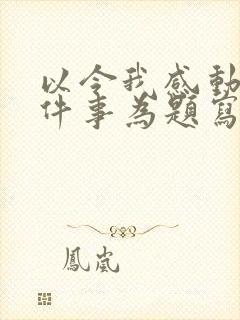 以令我感動
件事為題寫
鳳嵐